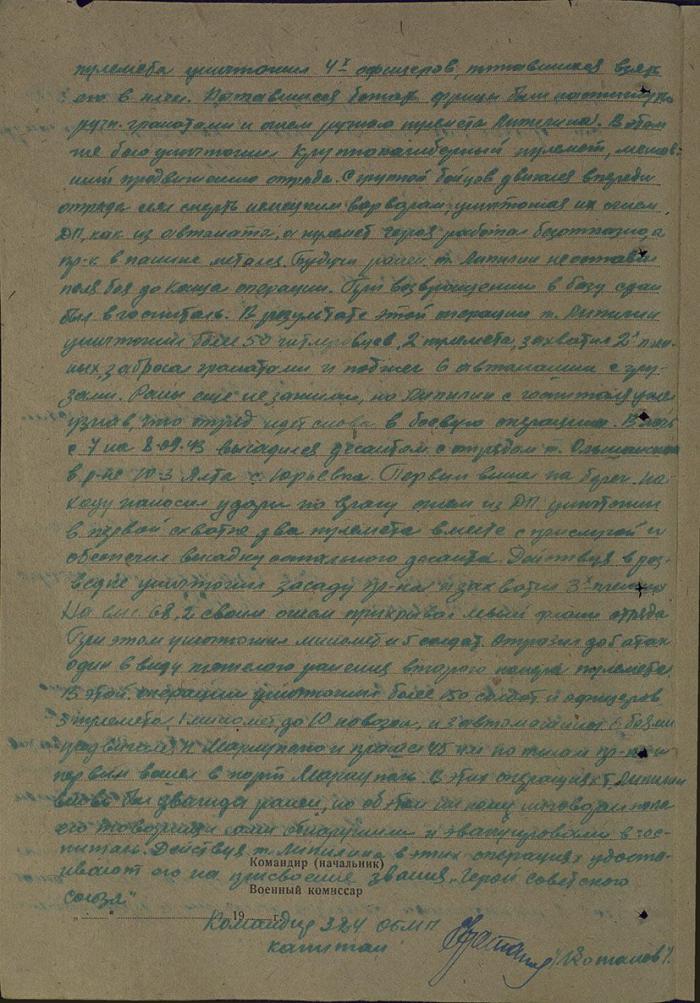 пулемета уничтожил 4х офицеров, пытавшихся взять
его в плен. Пытавшиеся бежать фрицы были
ручн. гранатами и огнем ручного пулемета Липилина. В этом
же бою уничтожил крупнокалиберный пулемет,
продвижению отряда. С группой бойцов двигался впереди
отряда сея смерть немецким варварам, уничтожая их огнем
ДП, как из автомата, а пулемет героя работал безотказно, а
пр-к в панике метался. Будучи ранен т. Липилин не оставил
поля боя до конца операции. При возвращении в базу сдан
был в госпиталь. В результате этой операции т. Липилин
уничтожил более 50 гитлеровцев, 2 пулемета, захватил 2х плен-
ных, забросал гранатами и поджег 6 автомашин с гру-
зами. Раны еще не зажили, но Липилин с госпиталя
узнав, что отряд идет снова в боевую операцию. В ночь
с 7 на 8.09.43 высадился десантом с отрядом т. Ольшанского
в р-не Ю-З Ялта с. Юрьевка. Первым вышел на берег. На
ходу наносил удары по врагу огнем из ДП уничтожил
в первой схватке два пулемета вместе с прислугой и
обеспечил высадку остального десанта. Действуя в раз-
ведке уничтожил засаду пр-ка и захватил 3х пленных
На выс. 68,2 своим огнем прикрывал левый фланг отряда
При этом уничтожил миномет и 5 солдат. Отразил до 6 атак
один в виду тяжелого ранения второго номера пулемета.
В этой операции уничтожил более 150 солдат и офицеров
3 пулемета 1 миномет, до 10 повозок, и 3 автомашины С боями
продвигаясь к Мариуполю и прошел 45 км по тылам пр-ка и
первым вошел в порт Мариуполь. В этих операциях т. Липилин
вновь был дважды ранен, но об этом ни кому не говорил пока
его товарищи сами обнаружили и эвакуировали в гос-
питаль. Действия т. Липилина в этих операциях удоста-
ивают его на присвоение звания „Герой Советского
Союза"
Командир (начальник)
Военный комиссар
„ “ 19 г.
Командир 324 ОБМП
капитан /Потапов/.